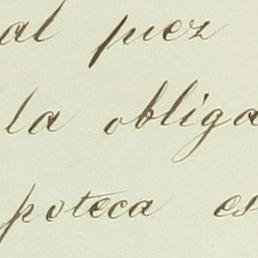 al juez
la obliga
poteca es